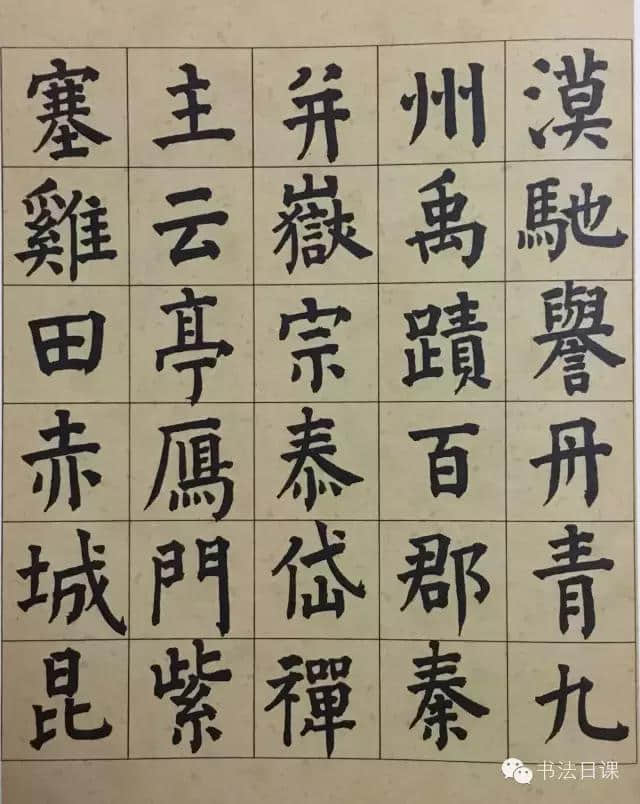 漠馳譽丹青九
州禹蹟百郡秦
并嶽宗泰岱禪
主云亭鴈門紫
塞雞田赤城昆
书法日课